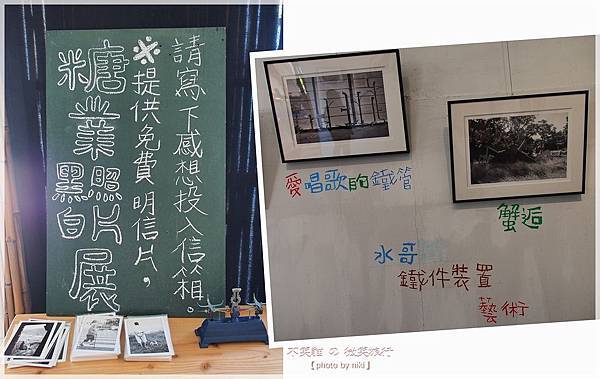 糖業黑白照片展
※提供免費明信片，
請寫下感想投入信箱。
愛唱歌的鐵管
蟹逅
水哥
鐵件裝置
藝術
不笑貓 の 微笑旅行
【photo by niki】